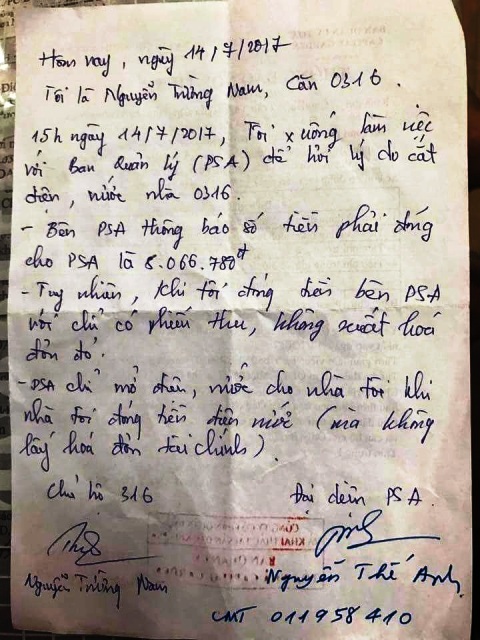 Hôm nay, ngày 14/7/2017
Tôi là Nguyễn Trường Nam, Căn 0316.
15h ngày 14/7/2017, Tôi xuống làm việc
với Ban Quản lý (PSA) để hỏi lý do cắt
điện, nước nhà 0316.
- Bên PSA thông báo số tiền phải đóng
cho PSA là 8.066.780đ
- Tuy nhiên, khi tôi đóng tiền bên PSA
với chỉ có phiếu thu, không xuất hoá
đơn đỏ.
- PSA chỉ mở điện, nước cho nhà tôi khi
nhà tôi đóng tiền điện nước (mà không
lấy hoá đơn tài chính).
Chủ hộ 316
Đại diện PSA
Nguyễn Trường Nam
Nguyễn Thế Anh
CMT 011958410